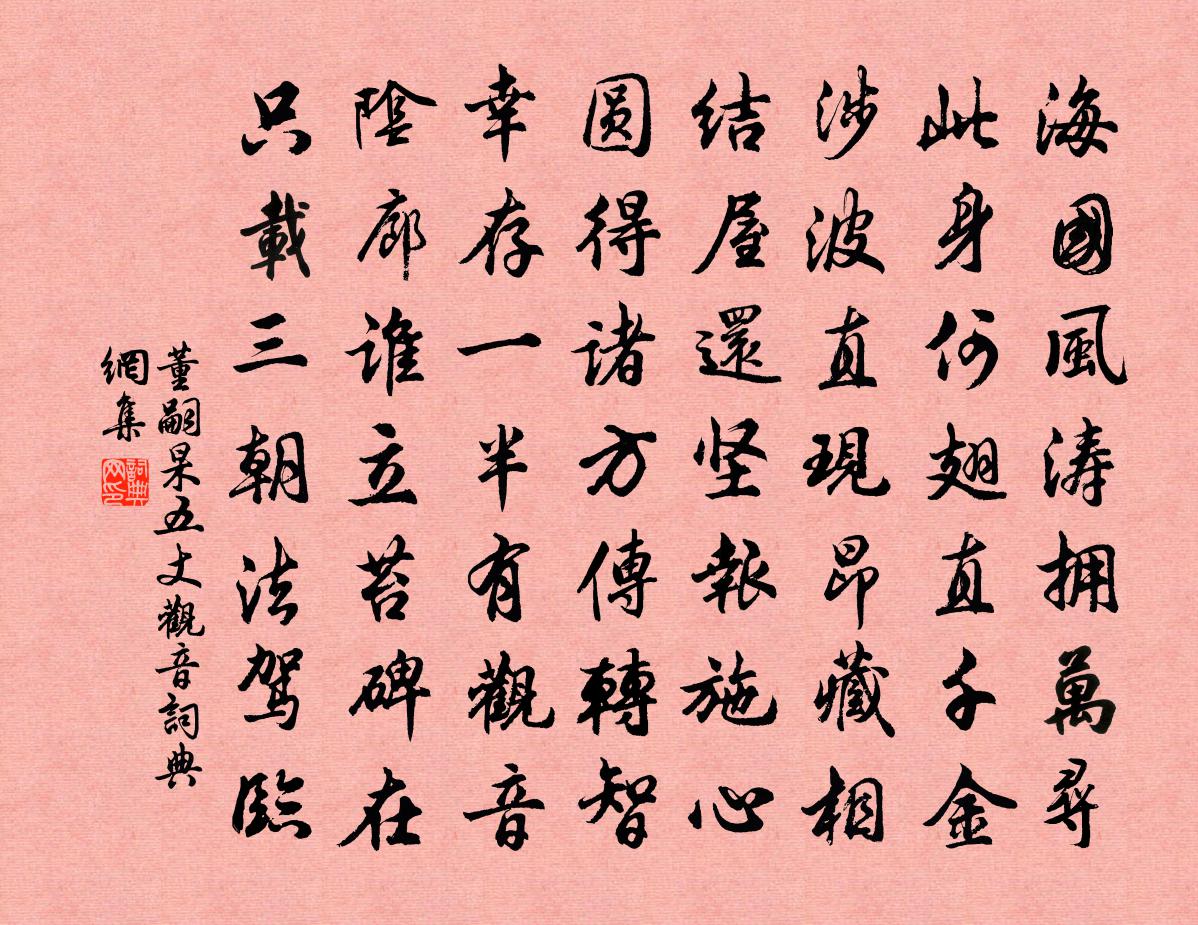 海國風濤拥萬尋
此身何翅直千金
涉波直現昂藏相
结屋還坚報施心
圆得诸方傳轉智
幸存一半有觀音
陰廊谁立苔碑在
只載三朝法驾臨
董嗣杲五丈觀音詞典
網集
詞典
网印